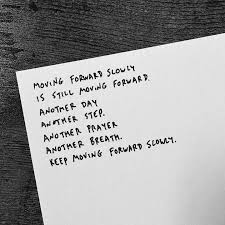 MOVING FORWARD SLOWLY
IS STILL MOVING FORWARD.
ANOTHER DAY
ANOTHER STEP.
ANOTHER PRAYER
ANOTHER BREATH.
KEEP MOVING FORWARD SLOWLY.